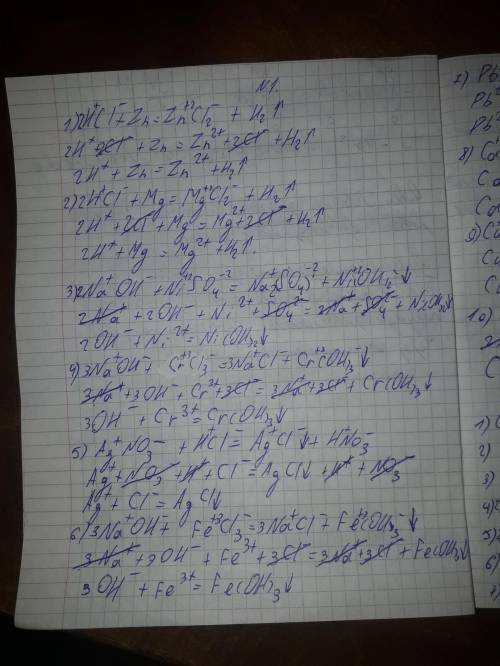 N1.
1) 2H⁺Cl⁻ + Zn = Zn⁺²Cl₂⁻ + H₂↑
2H⁺ + 2Cl⁻ + Zn = Zn²⁺ + 2Cl⁻ + H₂↑
2H⁺ + Zn = Zn²⁺ + H₂↑
2) 2H⁺Cl⁻ + Mg = Mg⁺²Cl₂⁻ + H₂↑
2H⁺ + 2Cl⁻ + Mg = Mg²⁺ + 2Cl⁻ + H₂↑
2H⁺ + Mg = Mg²⁺ + H₂↑.
3) 2Na⁺OH⁻ + Ni⁺²SO₄⁻² = Na₂⁺(SO₄)⁻² + Ni⁺²(OH)₂⁻↓
2Na⁺ + 2OH⁻ + Ni²⁺ + SO₄²⁻ = 2Na⁺ + SO₄²⁻ + Ni(OH)₂↓
2OH⁻ + Ni²⁺ = Ni(OH)₂↓
4) 3Na⁺OH⁻ + Cr⁺³Cl₃⁻ = 3Na⁺Cl⁻ + Cr⁺³(OH)₃⁻↓
3Na⁺ + 3OH⁻ + Cr³⁺ + 3Cl⁻ = 3Na⁺ + 3Cl⁻ + Cr(OH)₃↓
3OH⁻ + Cr³⁺ = Cr(OH)₃↓
5) Ag⁺NO₃⁻ + HCl = Ag⁺Cl⁻↓ + H⁺NO₃⁻
Ag⁺ + NO₃⁻ + H⁺ + Cl⁻ = AgCl↓ + H⁺ + NO₃⁻
Ag⁺ + Cl⁻ = AgCl↓
6) 3Na⁺OH⁻ + Fe⁺³Cl₃⁻ = 3Na⁺Cl⁻ + Fe⁺³(OH)₃⁻↓
3Na⁺ + 3OH⁻ + Fe³⁺ + 3Cl⁻ = 3Na⁺ + 3Cl⁻ + Fe(OH)₃↓
3OH⁻ + Fe³⁺ = Fe(OH)₃↓
7) Pb
Pb
Pb
8)
9)
10)
1)
2)
3)
4)
5)
6)
7)